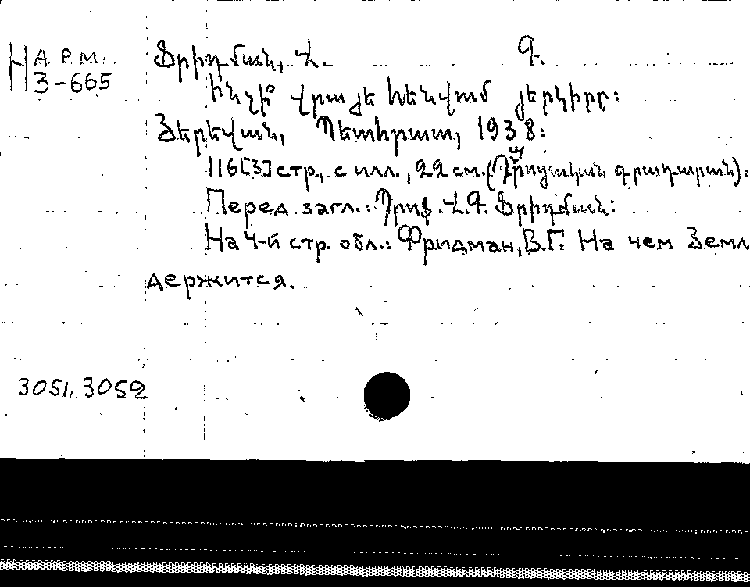 НАРМ.
3-665
Ֆրիդման, Վ. Գ.
Ինչի վրա յե հենվում յերկիրը։
Յերեվան, Պետհրատ, 1938։
116[3] стр., с илл., 22 см. (Դպրոցական գրադարան)։
Перед загл.: Պրոֆ. Վ. Գ. Ֆրիդման։
На 4-й стр. обл.: Фридман, В.Г. На чем Земл
держится.
3051, 3052